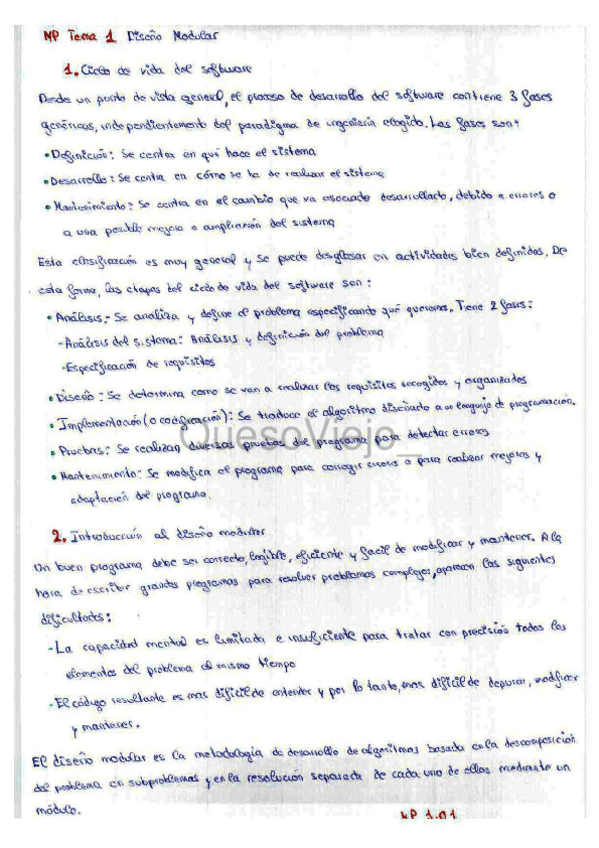 MP Tema 1 Diseño Modular
1. Ciclo de vida del software
Desde un punto de vista general, el proceso de desarrollo del software contiene 3 fases
genéricas, independientemente del paradigma de ingeniería elegido. Las fases son:
• Definición: Se centra en qué hace el sistema
• Desarrollo: Se centra en cómo se ha de realizar el sistema
• Mantenimiento: Se centra en el cambio que va asociado desarrollado, debido a errores o
a una posible mejora o ampliación del sistema
Esta clasificación es muy general y se puede desglosar en actividades bien definidas. De
esta forma, las etapas del ciclo de vida del software son:
• Análisis: Se analiza y define el problema especificando qué queremos. Tiene 2 fases:
- Análisis del sistema: Análisis y definición del problema
- Especificación de requisitos
• Diseño: Se determina como se van a realizar los requisitos recogidos y organizados
• Implementación (o codificación): Se traduce el algoritmo diseñado a un lenguaje de programación.
• Pruebas: Se realizan diversas pruebas del programa para detectar errores
QuesoViejo_
• Mantenimiento: Se modifica el programa para corregir errores o para realizar mejoras y
adaptación del programa.
2. Introducción al diseño modular
Un buen programa debe ser correcto, legible, eficiente y facil de modificar y mantener. A la
hora de escribir grandes programas para resolver problemas complejos, aparecen las siguientes
dificultades:
- La capacidad mental es limitada e insuficiente para tratar con precisión todos los
elementos del problema al mismo tiempo
- El código resultante es mas difícil de entender y por lo tanto, mas difícil de depurar, modificar
y mantener.
El diseño modular es la metodología de desarrollo de algoritmos basada en la descomposición
del problema en subproblemas y en la resolución separada de cada uno de ellos mediante un
módulo.
MP 1.01